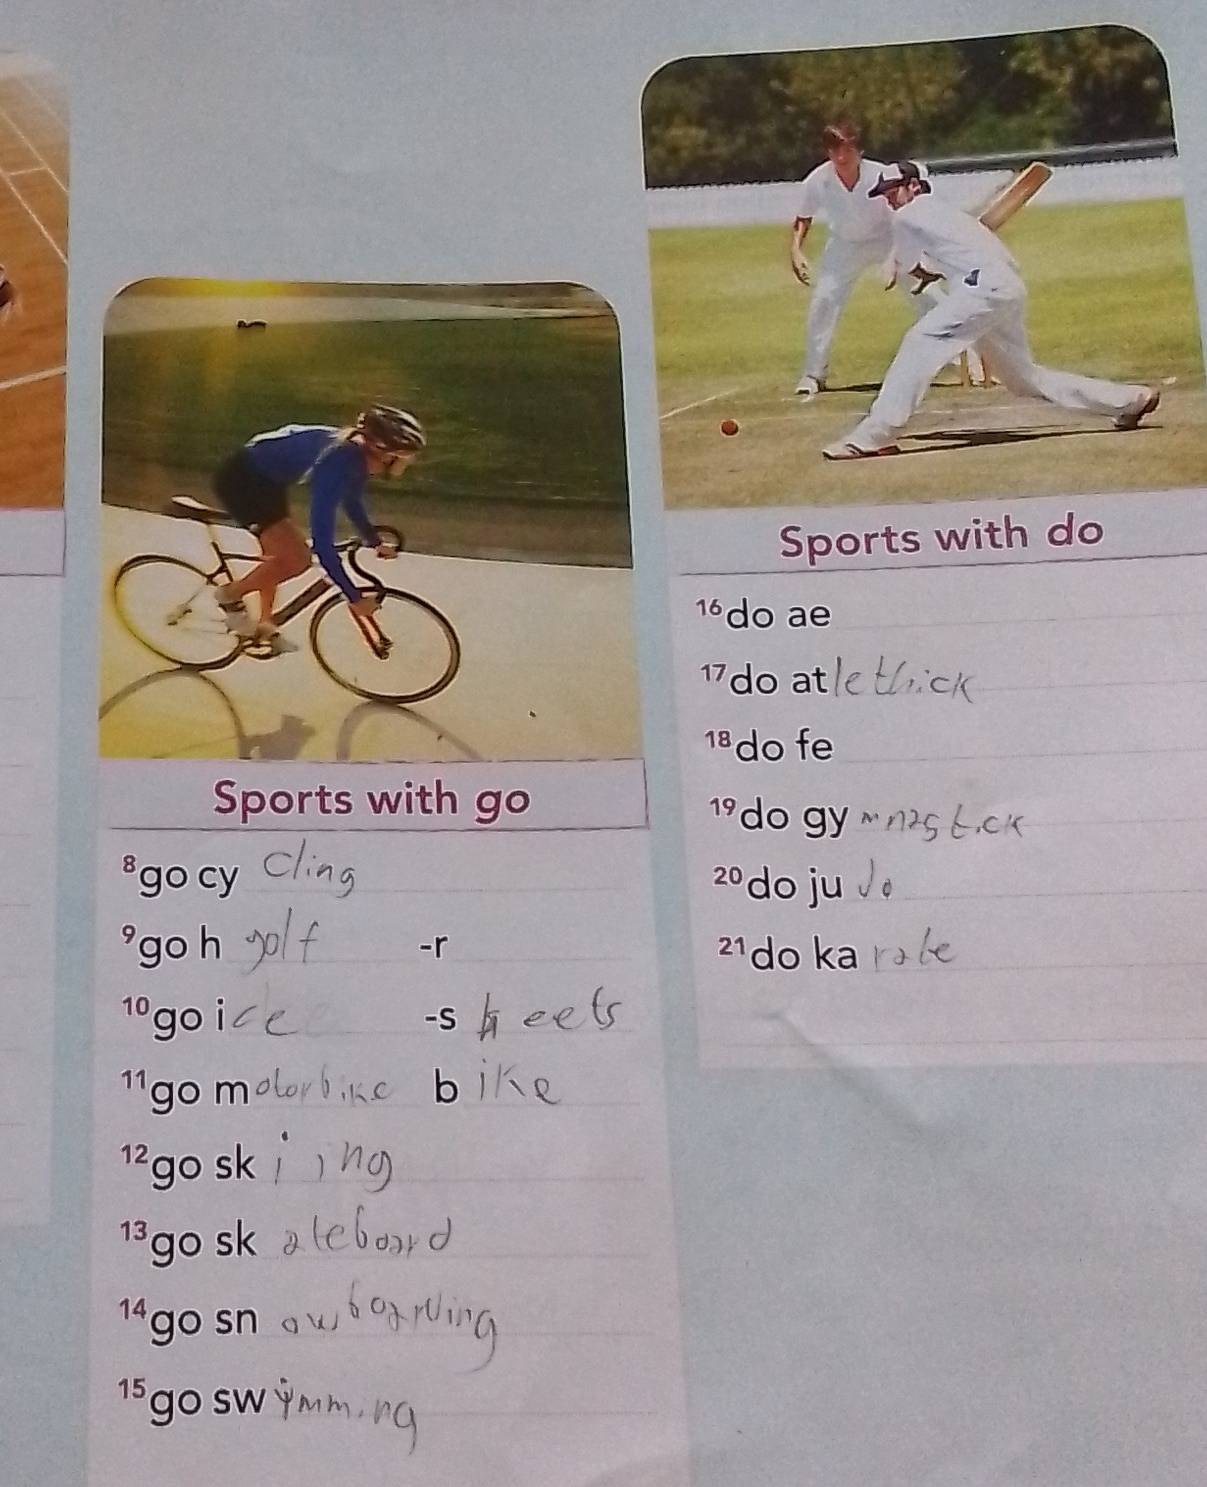 Sports with go
8 go cy cling
9 go h golf -r
10 go i ce -s keets
11 go m otorbike b ike
12 go sk iing
13 go sk ateboard
14 go sn owboarding
15 go sw imming
Sports with do
16 do ae
17 do at lethick
18 do fe
19 do gy mnastick
20 do ju do
21 do ka rate